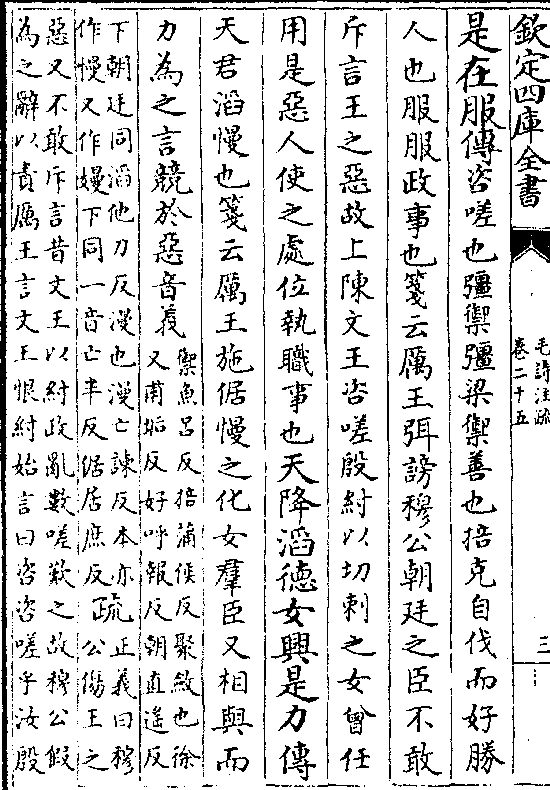 欽定四庫全書
毛詩注疏
卷二十五
三
是在服傳咨嗟也彊禦彊梁禦善也掊克自伐而好勝
人也服服政事也箋云厲王弭謗穆公朝廷之臣不敢
斥言王之惡故上陳文王咨嗟殷紂以切刺之女曾任
用是惡人使之處位執職事也天降滔德女興是力傳
天君滔慢也箋云厲王施倨慢之化女羣臣又相與而
力為之言競於惡音義
禦魚呂反掊蒲侯反聚斂也徐
又甫垢反好呼報反朝直遙反
下朝廷同滔他刀反漫也漫亡諫反本亦
作慢又作嫚下同一音亡半反倨居庶反
疏
正義曰穆
公傷王之
惡又不敢斥言昔文王以紂政亂數嗟歎之故穆公假
為之辭以責厲王言文王恨紂始言曰咨咨嗟乎汝殷